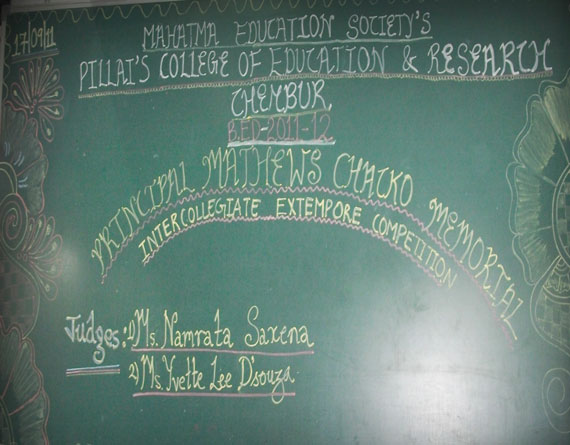 17/09/11
MAHATMA EDUCATION SOCIETY'S
PILLAI'S COLLEGE OF EDUCATION & RESEARCH
CHEMBUR.
B.ED-2011-12
PRINCIPAL MATHEWS CHACKO MEMORIAL
INTERCOLLEGIATE EXTEMPORE COMPETITION
Judges: 1) Ms. Namrata Saxena
2) Ms. Yvette Lee D'souza